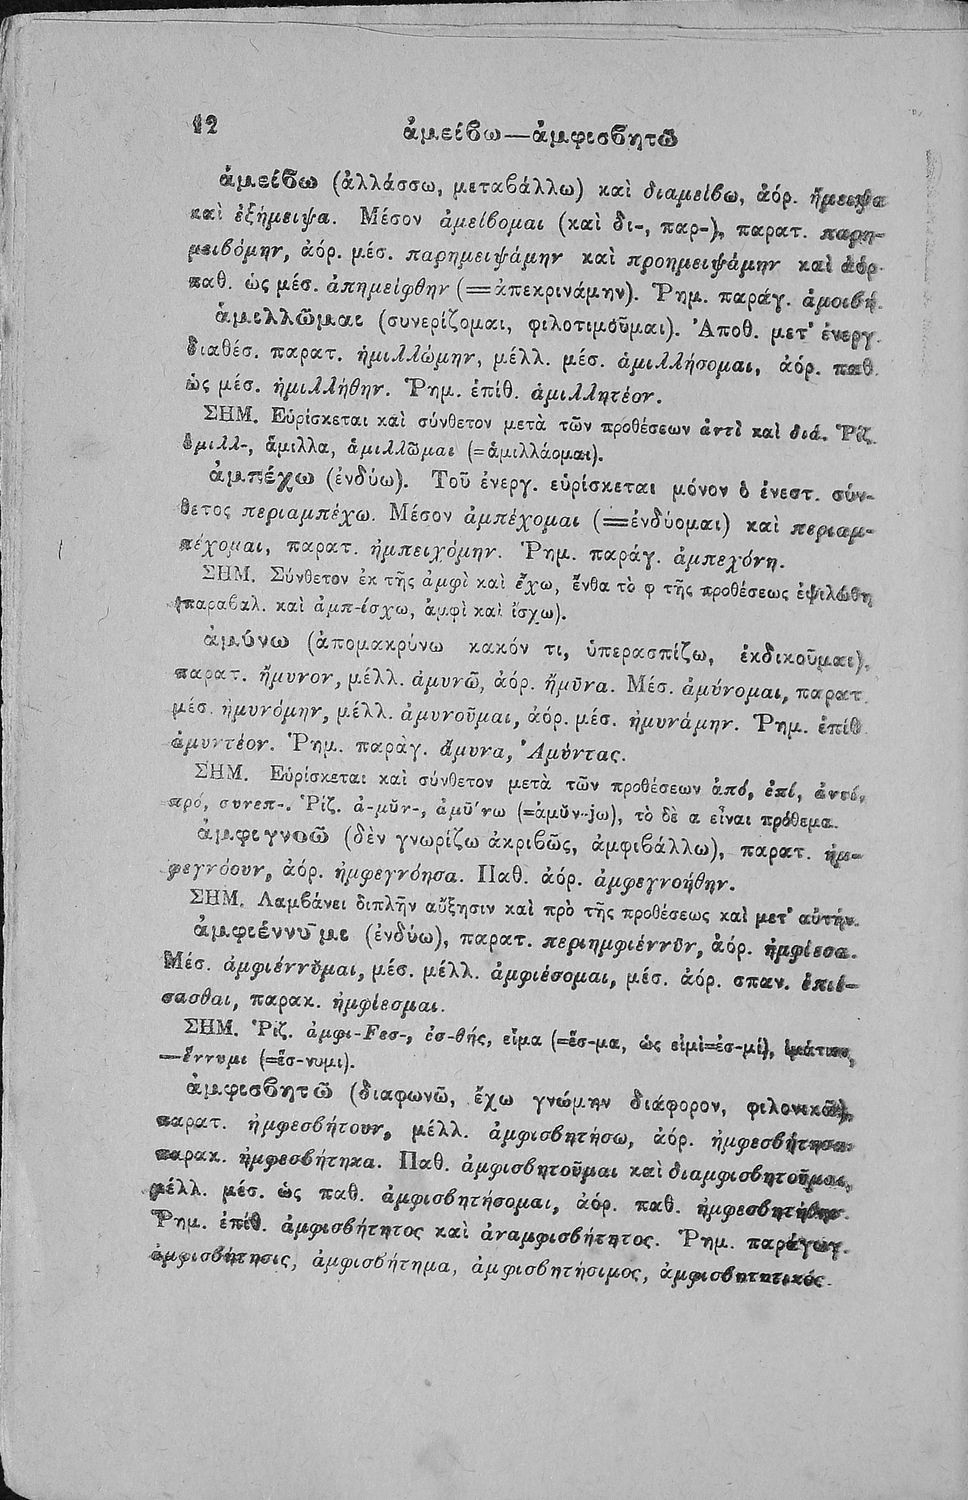 12
ἀμείβω—ἀμφισβητῶ
ἀμείβω (ἀλλάσσω, μεταβάλλω) καὶ διαμείβω, ἀόρ. ἤμειψα
καὶ ἐξήμειψα. Μέσον ἀμείβομαι (καὶ δι-, παρ-), παρατ. παρη-
μειβόμην, ἀόρ. μέσ. παρημειψάμην καὶ προημειψάμην καὶ ἀόρ.
παθ. ὡς μέσ. ἀπημείφθην (=ἀπεκρινάμην). Ῥημ. παράγ. ἀμοιβή.
ἁμιλλῶμαι (συνερίζομαι, φιλοτιμοῦμαι). Ἀποθ. μετ' ἐνεργ.
διαθέσ. παρατ. ἡμιλλώμην, μέλλ. μέσ. ἁμιλλήσομαι, ἀόρ. παθ.
ὡς μέσ. ἡμιλλήθην. Ῥημ. ἐπίθ. ἁμιλλητέον.
ΣΗΜ. Εὑρίσκεται καὶ σύνθετον μετὰ τῶν προθέσεων ἀντὶ καὶ διά. Ῥίζ.
ἁμιλλ-, ἅμιλλα, ἁμιλλῶμαι (=ἁμιλλάομαι).
ἀμπέχω (ἐνδύω). Τοῦ ἐνεργ. εὑρίσκεται μόνον ὁ ἐνεστ. σύν-
θετος περιαμπέχω. Μέσον ἀμπέχομαι (=ἐνδύομαι) καὶ περιαμ-
πέχομαι, παρατ. ἠμπειχόμην. Ῥημ. παράγ. ἀμπεχόνη.
ΣΗΜ. Σύνθετον ἐκ τῆς ἀμφὶ καὶ ἔχω, ἔνθα τὸ φ τῆς προθέσεως ἐψιλώθη
(παραβαλ. καὶ ἀμπ-ίσχω, ἀμφὶ καὶ ἴσχω).
ἀμύνω (ἀπομακρύνω κακόν τι, ὑπερασπίζω, ἐκδικοῦμαι),
παρατ. ἤμυνον, μέλλ. ἀμυνῶ, ἀόρ. ἤμῡνα. Μέσ. ἀμύνομαι, παρατ.
μέσ. ἠμυνόμην, μέλλ. ἀμυνοῦμαι, ἀόρ. μέσ. ἠμυνάμην. Ῥημ. ἐπίθ.
ἀμυντέον. Ῥημ. παράγ. ἄμυνα, Ἀμύντας.
ΣΗΜ. Εὑρίσκεται καὶ σύνθετον μετὰ τῶν προθέσεων ἀπό, ἐπί, ἀντί,
πρό, συνεπ-. Ῥίζ. ἀ-μῠν-, ἀμῡ́νω (=ἀμῠν-jω), τὸ δὲ α εἶναι πρόθεμα.
ἀμφιγνοῶ (δὲν γνωρίζω ἀκριβῶς, ἀμφιβάλλω), παρατ. ἠμ-
φεγνόουν, ἀόρ. ἠμφεγνόησα. Παθ. ἀόρ. ἀμφεγνοήθην.
ΣΗΜ. Λαμβάνει διπλῆν αὔξησιν καὶ πρὸ τῆς προθέσεως καὶ μετ' αὐτήν.
ἀμφιέννῡμι (ἐνδύω), παρατ. περιημφιέννῡν, ἀόρ. ἠμφίεσα.
Μέσ. ἀμφιέννῠμαι, μέσ. μέλλ. ἀμφιέσομαι, μέσ. ἀόρ. σπαν. ἐπιέ-
σασθαι, παρακ. ἠμφίεσμαι.
ΣΗΜ. Ῥίζ. ἀμφι-Fεσ-, ἐσ-θής, εἷμα (=ἕσ-μα, ὡς εἰμὶ=ἐσ-μί), ἱμάτιον,
—ἕννυμι (=ἕσ-νυμι).
ἀμφισβητῶ (διαφωνῶ, ἔχω γνώμην διάφορον, φιλονικῶ),
παρατ. ἠμφεσβήτουν, μέλλ. ἀμφισβητήσω, ἀόρ. ἠμφεσβήτησα.
παρακ. ἠμφεσβήτηκα. Παθ. ἀμφισβητοῦμαι καὶ διαμφισβητοῦμαι,
μέλλ. μέσ. ὡς παθ. ἀμφισβητήσομαι, ἀόρ. παθ. ἠμφεσβητήθην.
Ῥημ. ἐπίθ. ἀμφισβήτητος καὶ ἀναμφισβήτητος. Ῥημ. παράγωγ.
ἀμφισβήτησις, ἀμφισβήτημα, ἀμφισβητήσιμος, ἀμφισβητητικός.